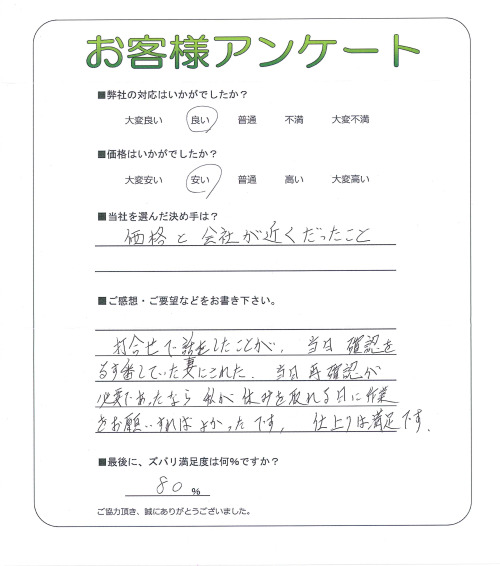 お客様アンケート
■弊社の対応はいかがでしたか？
大変良い 良い 普通 不満 大変不満
■価格はいかがでしたか？
大変安い 安い 普通 高い 大変高い
■当社を選んだ決め手は？
価格と会社が近くだったこと
■ご感想・ご要望などをお書き下さい。
打合せで話をしたことが、当日確認を
るす番していた妻にされた。当日再確認が
必要であったなら私が休みを取れる日に作業
をお願いすればよかったです。仕上りは満足です.
■最後に、ズバリ満足度は何%ですか？
80 %
ご協力頂き、誠にありがとうございました。